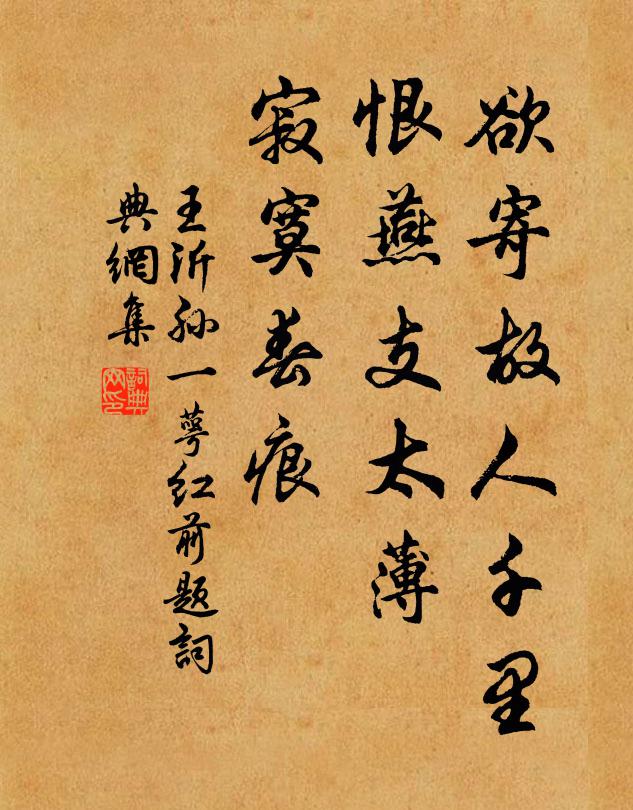 欲寄故人千里
恨燕支太薄
寂寞春痕
王沂孙一萼红前题詞
典網集
詞典網印